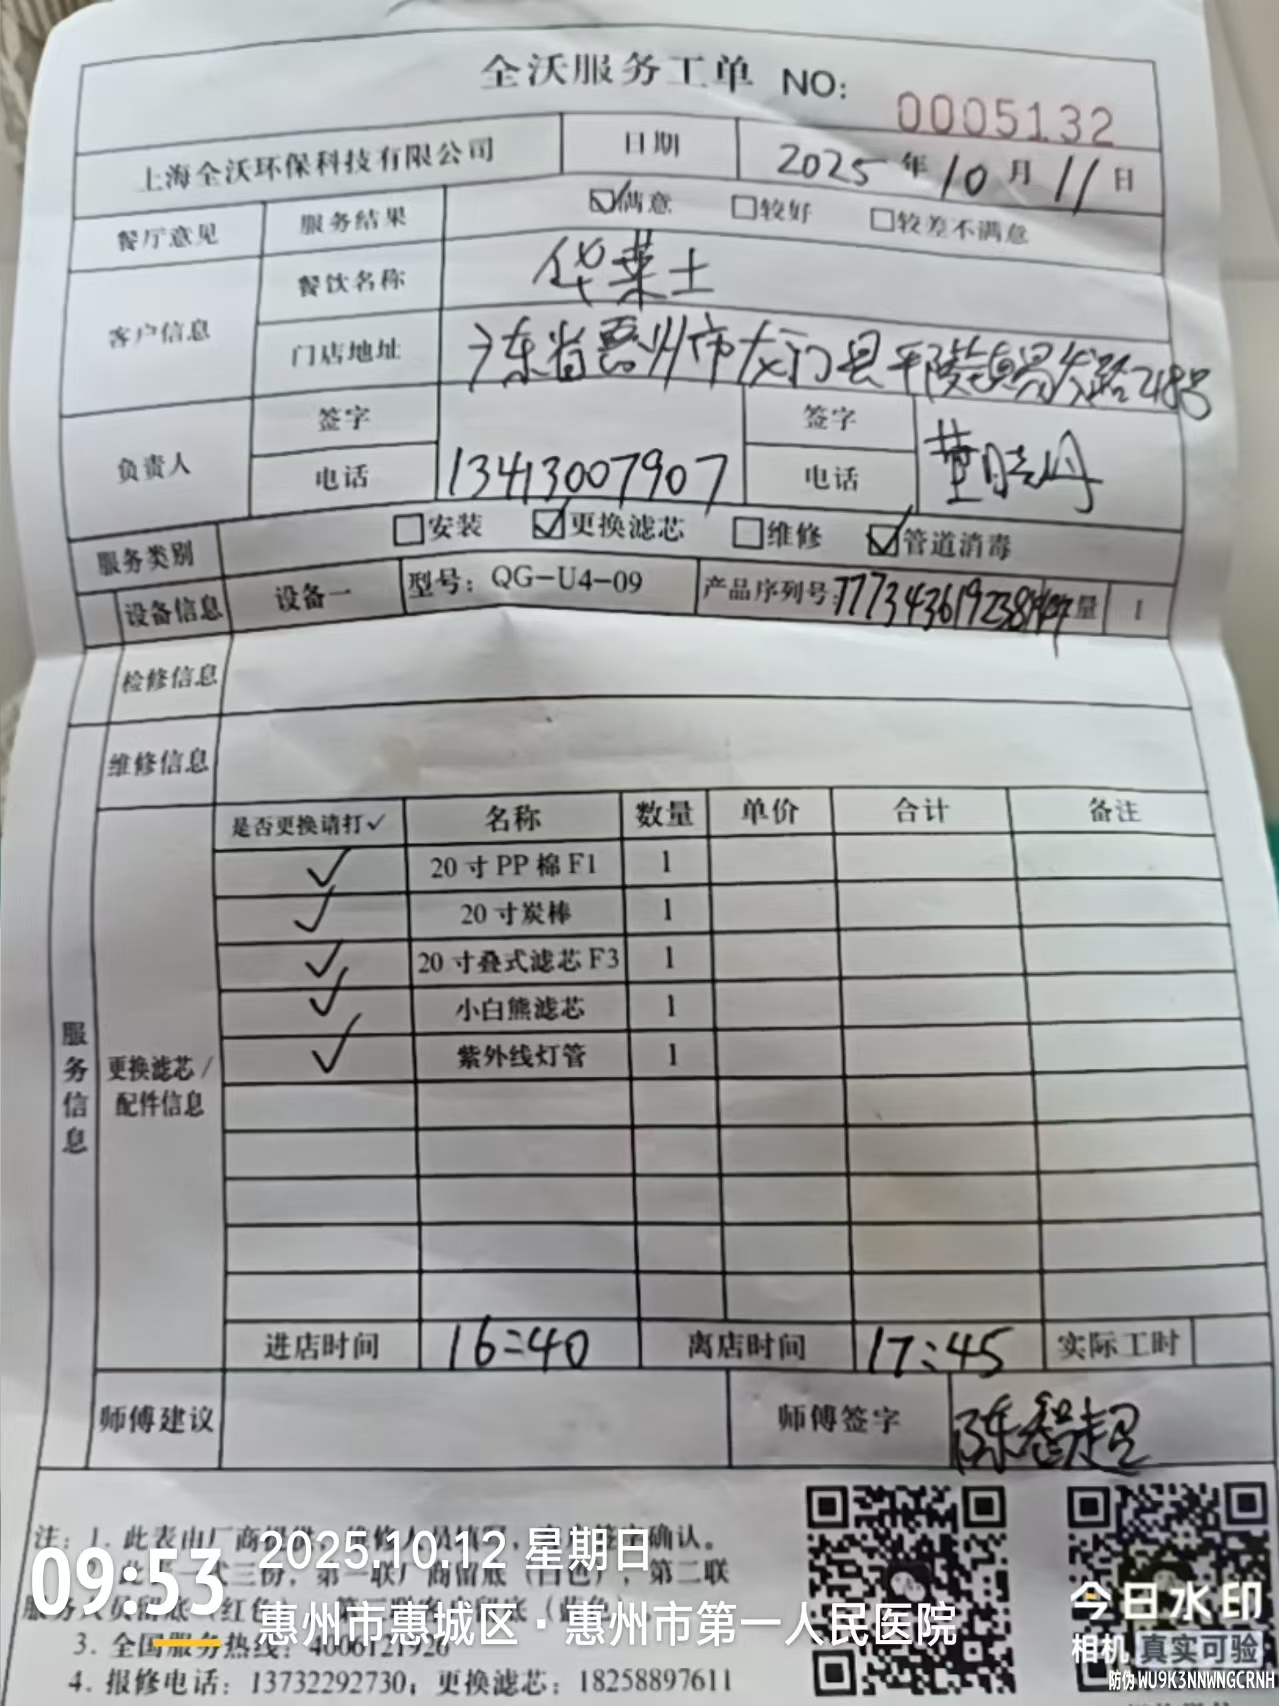 全沃服务工单 NO: 0005132
上海全沃环保科技有限公司 日期 2025年10月11日
餐厅意见 服务结果 ☑满意 □较好 □较差不满意
客户信息 餐饮名称 华莱士
门店地址 广东省惠州市龙门县平陵镇易发路248号
负责人 签字 签字 董晓丹
电话 13413007907 电话
服务类别 □安装 ☑更换滤芯 □维修 ☑管道消毒
设备信息 设备一 型号: QG-U4-09 产品序列号: 量 1
检修信息
维修信息
服务信息
更换滤芯/配件信息
是否更换请打✓ 名称 数量 单价 合计 备注
✓ 20寸PP棉F1 1
✓ 20寸炭棒 1
✓ 20寸叠式滤芯F3 1
✓ 小白熊滤芯 1
✓ 紫外线灯管 1
进店时间 16:40 离店时间 17:45 实际工时
师傅建议 师傅签字 陈智超
注: 1. 此表由厂商 确认。
此 一式三份, 第一联厂商留底(白色), 第二联
服务 (红色
3. 全国服务热线: 4006121926
4. 报修电话: 13732292730; 更换滤芯: 18258897611
09:53 2025.10.12 星期日
惠州市惠城区·惠州市第一人民医院
今日水印
相机 真实可验
防伪 WU9K3NNWNGCRNH